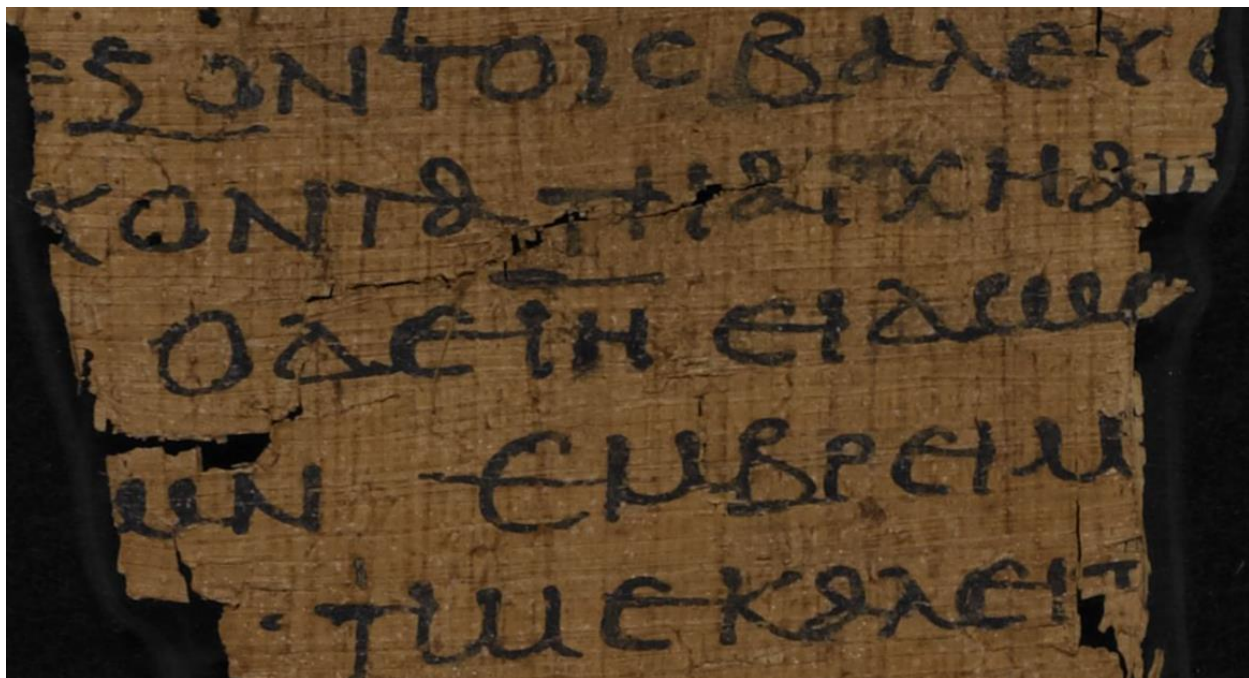 ΕΞΟΝ ΤΟΙϹ ΒΑΛΕΥϹ
ΚΟΝΤΑ ΤΗ ΑΡΧΗ ΑΠ
Ο ΔΕ ΙΗ ΕΙΔΩϹ
ΩΝ ΕΜΒΡΕΙΜ
ΤΙ ΜΕ ΚΑΛΕΙΤ